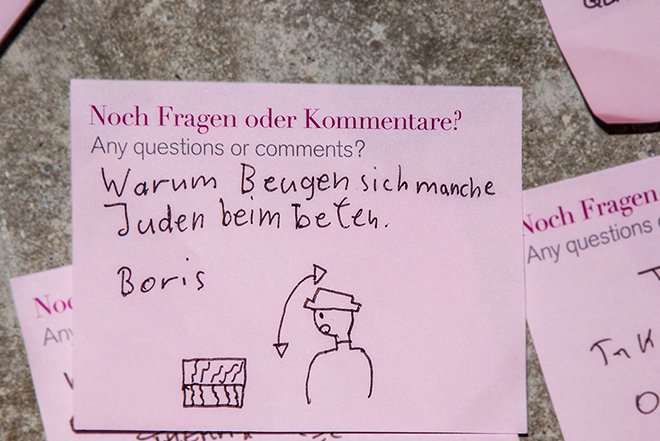 Noch Fragen oder Kommentare?
Any questions or comments?
Warum Beugen sich manche
Juden beim beten.
Boris
Noch Fragen
Any questions